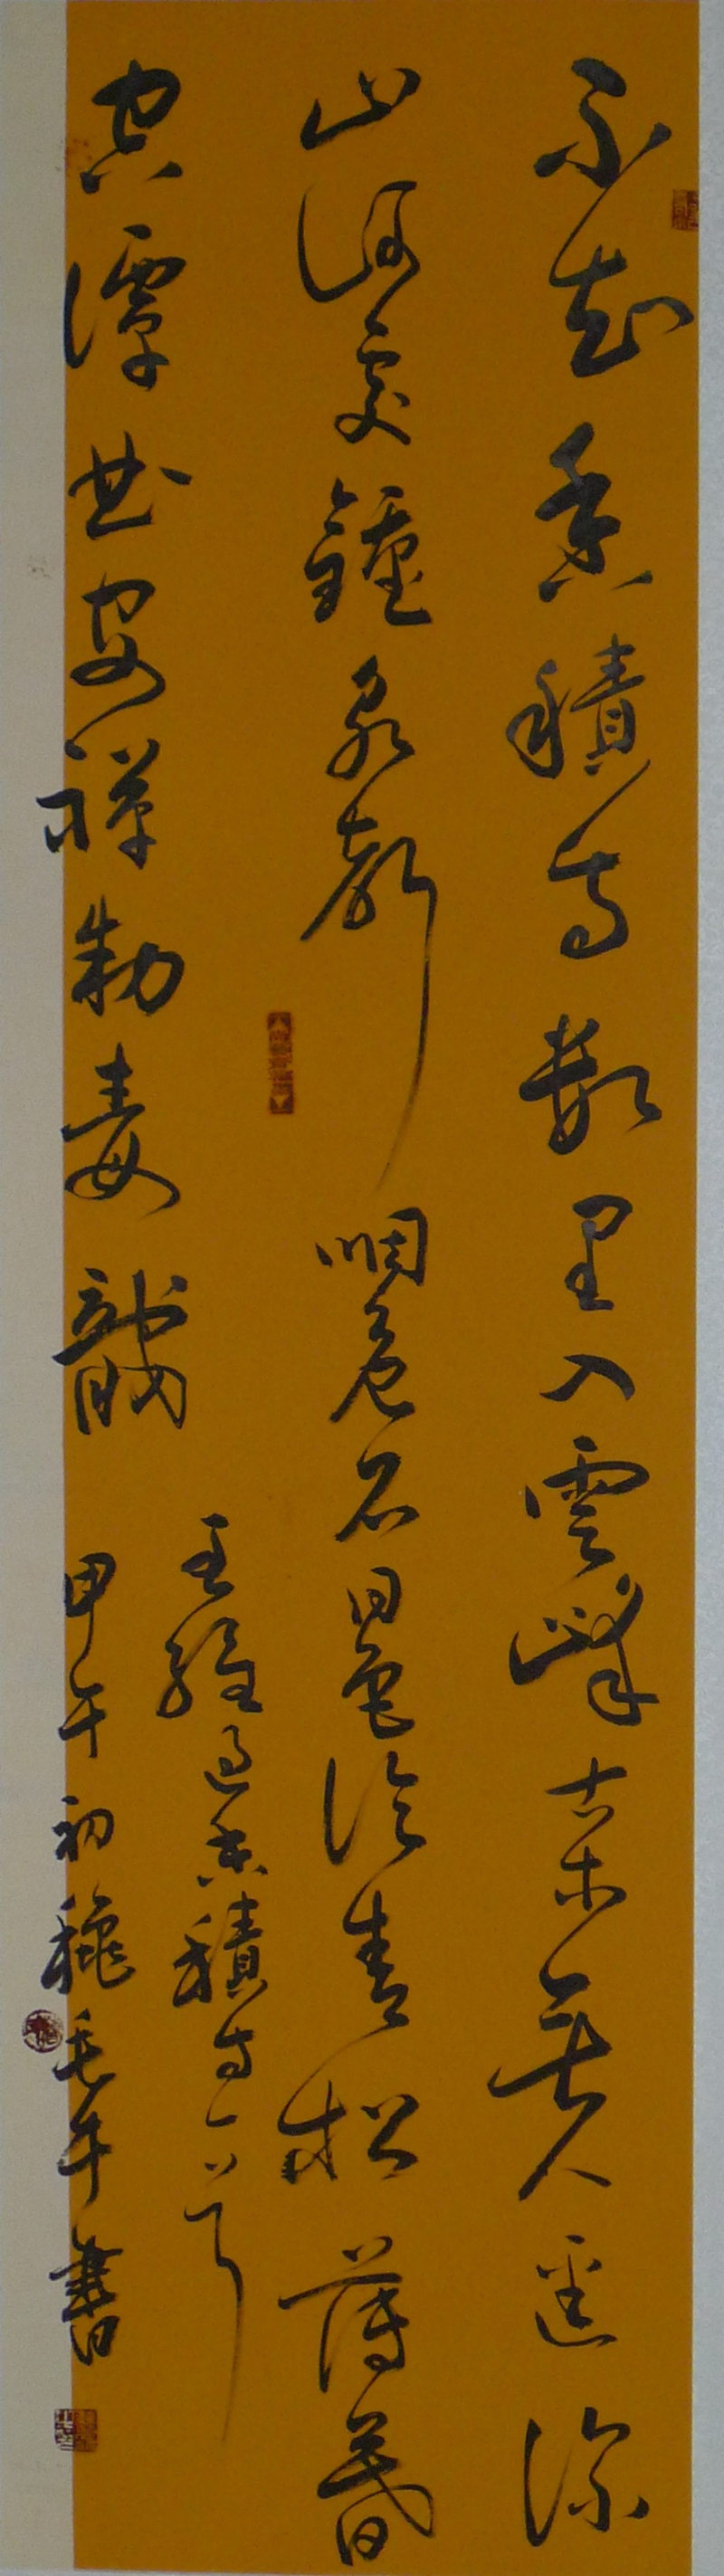 不知香積寺數里入雲峰古木無人逕深
山何處鍾泉聲咽危石日色冷青松薄暮
空潭曲安禪制毒龍
王維過香積寺一首
甲午初龝毛書